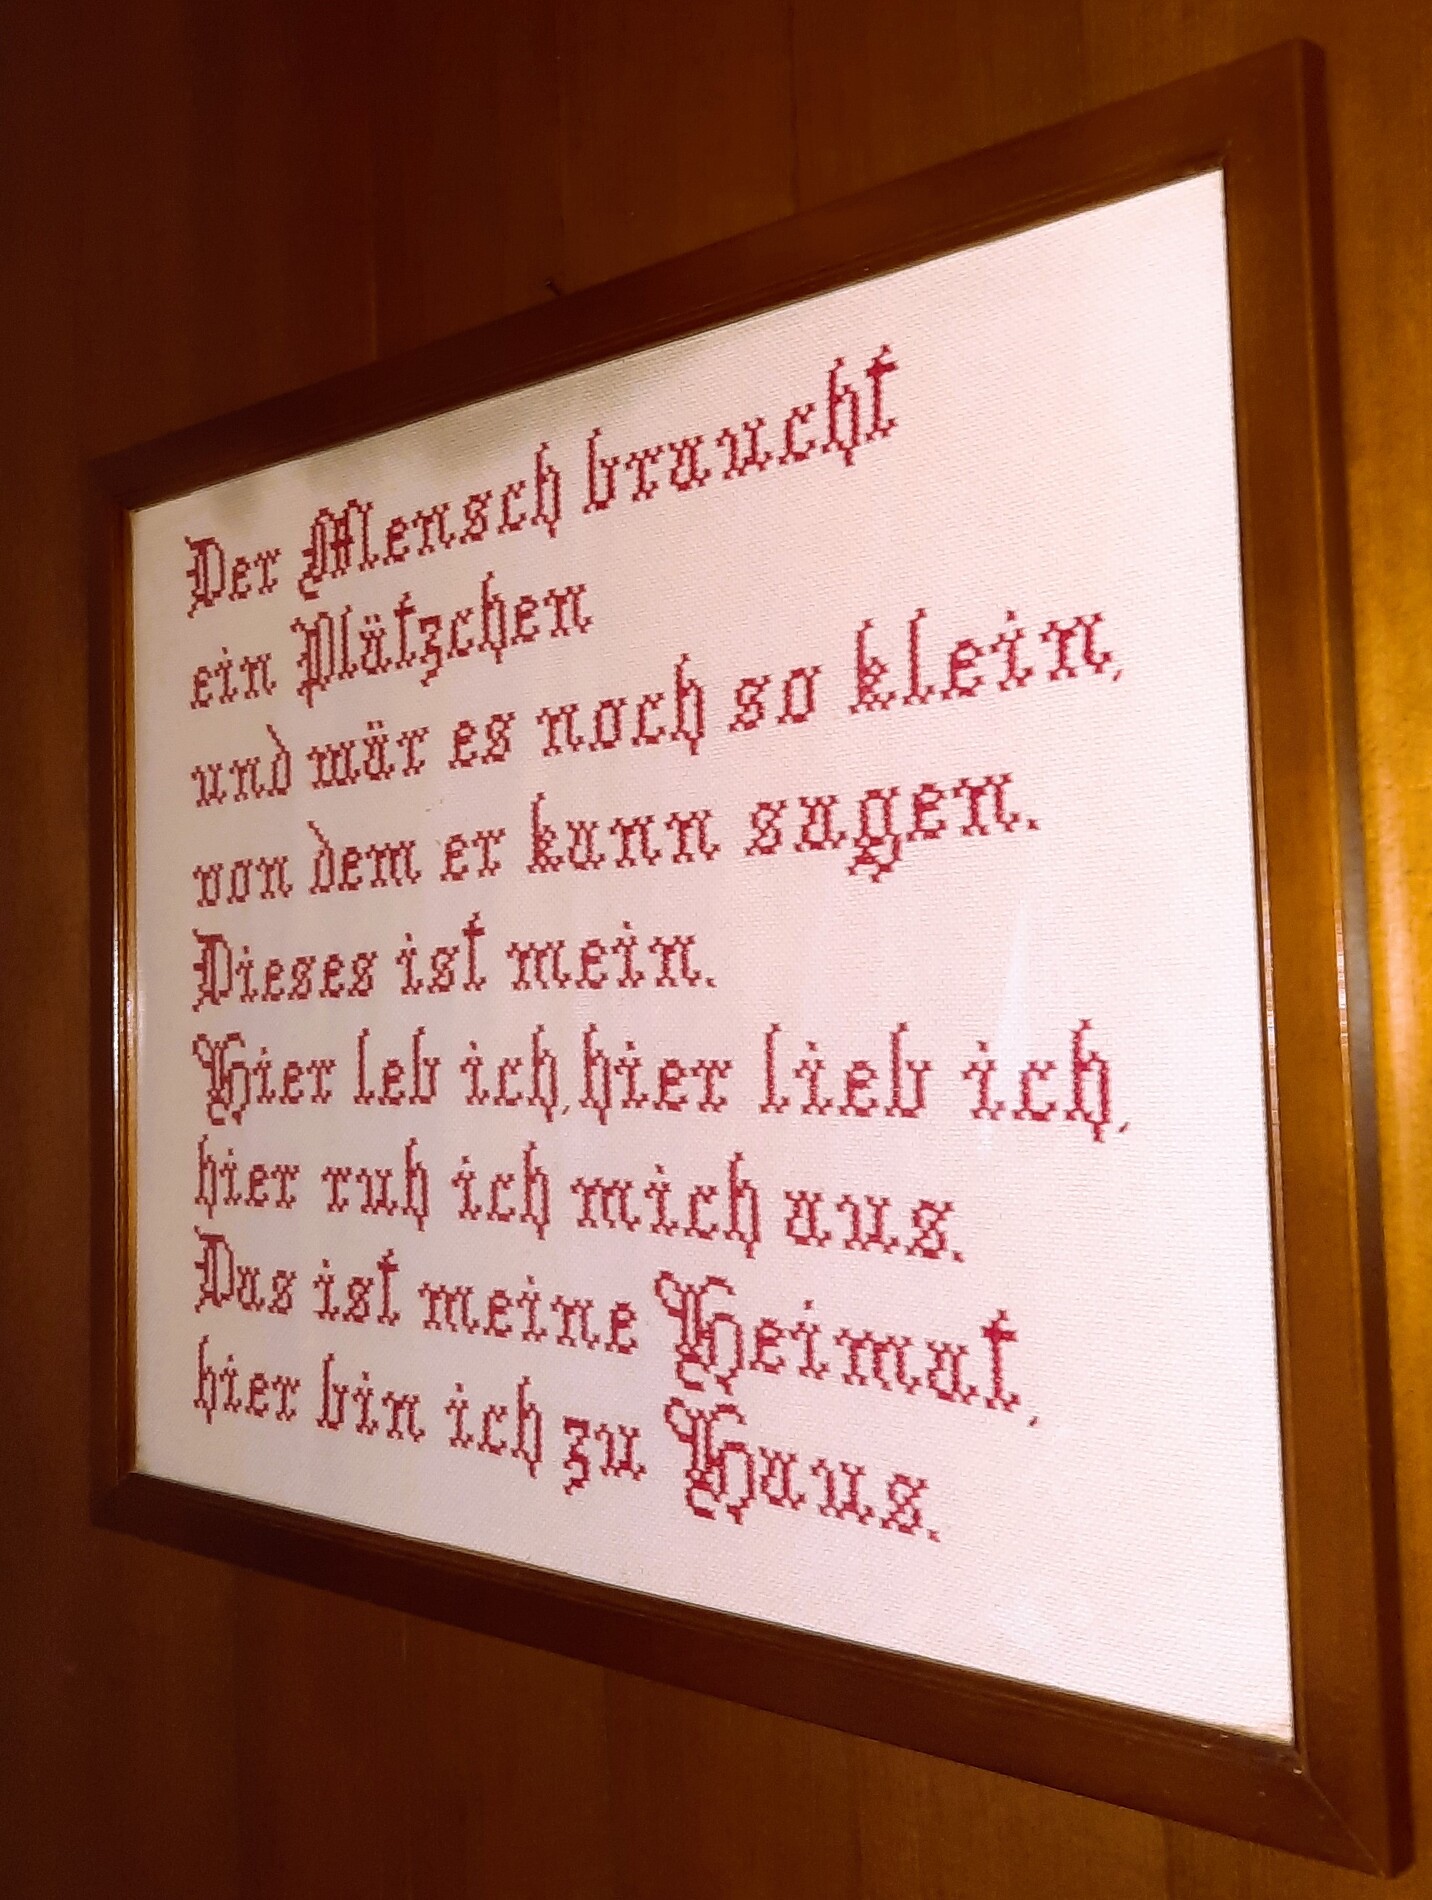 Der Mensch braucht
ein Plätzchen
und wär es noch so klein,
von dem er kann sagen.
Dieses ist mein.
Hier leb ich, hier lieb ich,
hier ruh ich mich aus.
Das ist meine Heimat,
hier bin ich zu Haus.